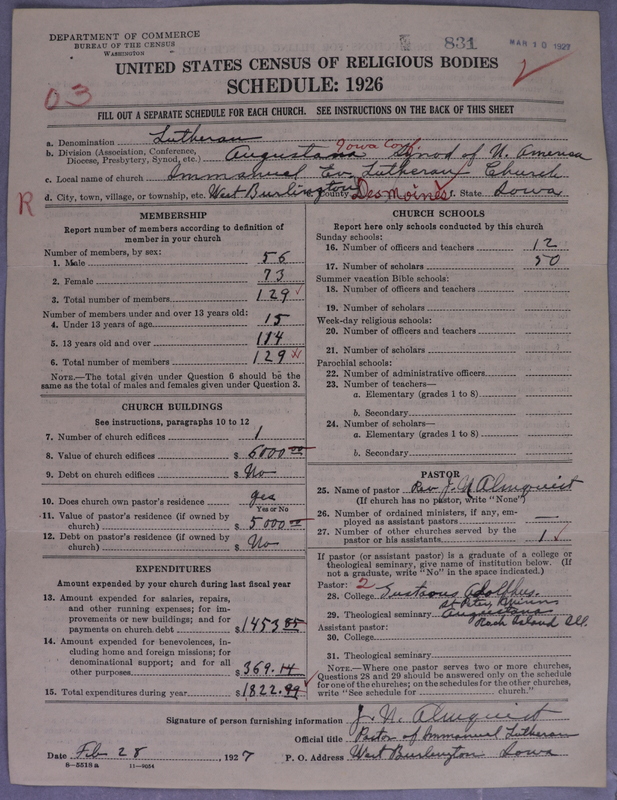 DEPARTMENT OF COMMERCE
BUREAU OF THE CENSUS
WASHINGTON
831
MAR 10 1927
UNITED STATES CENSUS OF RELIGIOUS BODIES
SCHEDULE: 1926
2
03
FILL OUT A SEPARATE SCHEDULE FOR EACH CHURCH. SEE INSTRUCTIONS ON THE BACK OF THIS SHEET
a. Denomination Lutheran
Iowa Conf.
b. Division (Association, Conference, Diocese, Presbytery, Synod, etc.) Augustana Synod of N. America
c. Local name of church Immanuel Ev. Lutheran Church
R
d. City, town, village, or township, etc. West Burlington e. County Des Moines f. State Iowa
MEMBERSHIP
Report number of members according to definition of
member in your church
Number of members, by sex:
1. Male 56
2. Female 73
3. Total number of members 129
Number of members under and over 13 years old:
4. Under 13 years of age 15
5. 13 years old and over 114
6. Total number of members 129
NOTE.—The total given under Question 6 should be the
same as the total of males and females given under Question 3.
CHURCH BUILDINGS
See instructions, paragraphs 10 to 12
7. Number of church edifices 1
8. Value of church edifices $ 6000 00
9. Debt on church edifices $ No
10. Does church own pastor's residence yes
Yes or No
11. Value of pastor's residence (if owned by
church) $ 5000 00
12. Debt on pastor's residence (if owned by
church) $ No
EXPENDITURES
Amount expended by your church during last fiscal year
13. Amount expended for salaries, repairs,
and other running expenses; for im-
provements or new buildings; and for
payments on church debt $ 1453.85
14. Amount expended for benevolences, in-
cluding home and foreign missions; for
denominational support; and for all
other purposes $ 369.14
15. Total expenditures during year $ 1822.99
CHURCH SCHOOLS
Report here only schools conducted by this church
Sunday schools:
16. Number of officers and teachers 12
17. Number of scholars 50
Summer vacation Bible schools:
18. Number of officers and teachers
19. Number of scholars
Week-day religious schools:
20. Number of officers and teachers
21. Number of scholars
Parochial schools:
22. Number of administrative officers
23. Number of teachers—
a. Elementary (grades 1 to 8)
b. Secondary
24. Number of scholars—
a. Elementary (grades 1 to 8)
b. Secondary
PASTOR
25. Name of pastor Rev J. N. Almquist
(If church has no pastor, write "None")
26. Number of ordained ministers, if any, em-
ployed as assistant pastors —
27. Number of other churches served by the
pastor or his assistants 1
If pastor (or assistant pastor) is a graduate of a college or
theological seminary, give name of institution below. (If
not a graduate, write "No" in the space indicated.)
Pastor: 2
28. College Gustavus Adolphus.
St Peter, Minn
29. Theological seminary Augustana
Rock Island Ill.
Assistant pastor:
30. College
31. Theological seminary
NOTE.—Where one pastor serves two or more churches,
Questions 28 and 29 should be answered only on the schedule
for one of the churches; on the schedules for the other churches,
write "See schedule for church."
Signature of person furnishing information J. N. Almquist
Official title Pastor of Immanuel Lutheran
Date Feb 28, 1927 P. O. Address West Burlington Iowa
8—5518a 11—9054